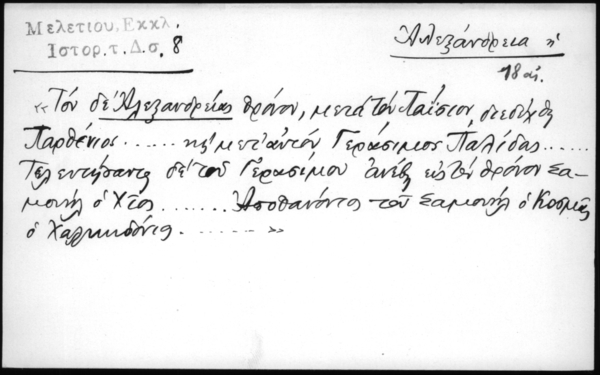 Μελετίου, Εκκλ.
Ιστορ. τ. Δ. σ. 8
Ἀλεξάνδρεια ἡ
18 αἰ.
«Τὸν δὲ Ἀλεξανδρείας θρόνον, μετὰ τὸν Παΐσιον, διεδέχθη
Παρθένιος ...... καὶ μετ' αὐτὸν Γεράσιμος Παλίδας.....
Τελευτήσαντος δὲ τοῦ Γερασίμου ἀνέβη εἰς τὸν θρόνον Σα-
μουὴλ ὁ Χῖος ....... Ἀποθανόντος τοῦ Σαμουὴλ ὁ Κοσμᾶς
ὁ Χαλκηδόνιος ........ »